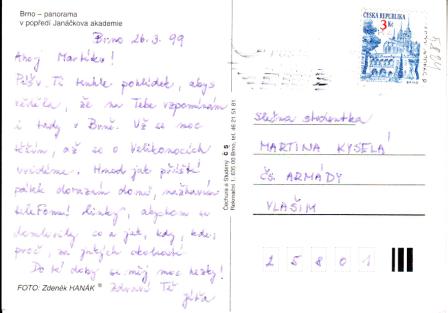 Brno – panorama
v popředí Janáčkova akademie
Brno 26.3.99
Ahoj Martinko!
Píši Ti tenhle pohlídek, abys
věděla, že na Tebe vzpomínám
i tady v Brně. Už se moc
těším, až se o Velikonocích
uvidíme. Hned jak příští
pátek dorazím domů,
telefonní linky, abychom se
domluvily co a jak, kdy, kde,
proč, za jakých okolností
Do té doby se měj moc hezky!
Zdraví Tě
FOTO: Zdeněk HANÁK ®
Čechura a Studený Č S
Reknarosní 1, 635 00 Brno, tel. 46 21 51 81
ČESKÁ REPUBLIKA
3 Kč
slečna studentka
MARTINA KYSELÁ
ČS. ARMÁDY
VLAŠIM
2 5 8 0 1